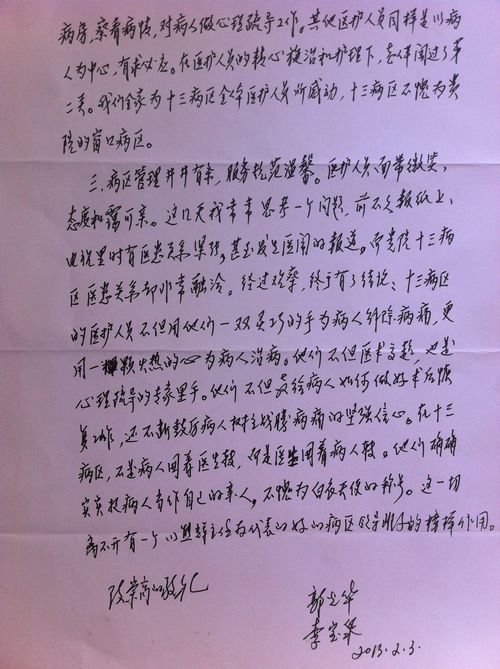 病房，察看病情，对病人做心理疏导工作。其他医护人员同样是以病
人为中心，有求必应。在医护人员的精心救治和护理下，老人闯过了第
二关。我们全家为十三病区全体医护人员所感动，十三病区不愧为贵
院的窗口病区。
三.病区管理井井有条，服务规范温馨。医护人员面带微笑，
态度和蔼可亲。这几天我常常思考一个问题，前不久报纸上、
电视里时有医患关系紧张，甚至发生医闹的报道。而贵院十三病
区医患关系却非常融洽。经过观察，终于有了结论：十三病区
的医护人员不但用他们一双灵巧的手为病人解除病痛，更
用一颗火热的心为病人治病。他们不但医术高超，也是
心理疏导的专家里手。他们不但交给病人如何做好术后恢
复工作，还不断鼓励病人树立战胜病痛的坚强信心。在十三
病区，不是病人围着医生转，而是医生围着病人转。他们确确
实实把病人当作自己的亲人，不愧为白衣天使的称号。这一切
离不开有一个以 主任为代表的好的病区领导 的榜样作用。
致崇高的敬礼
郭 华
李宝
2013.2.3.